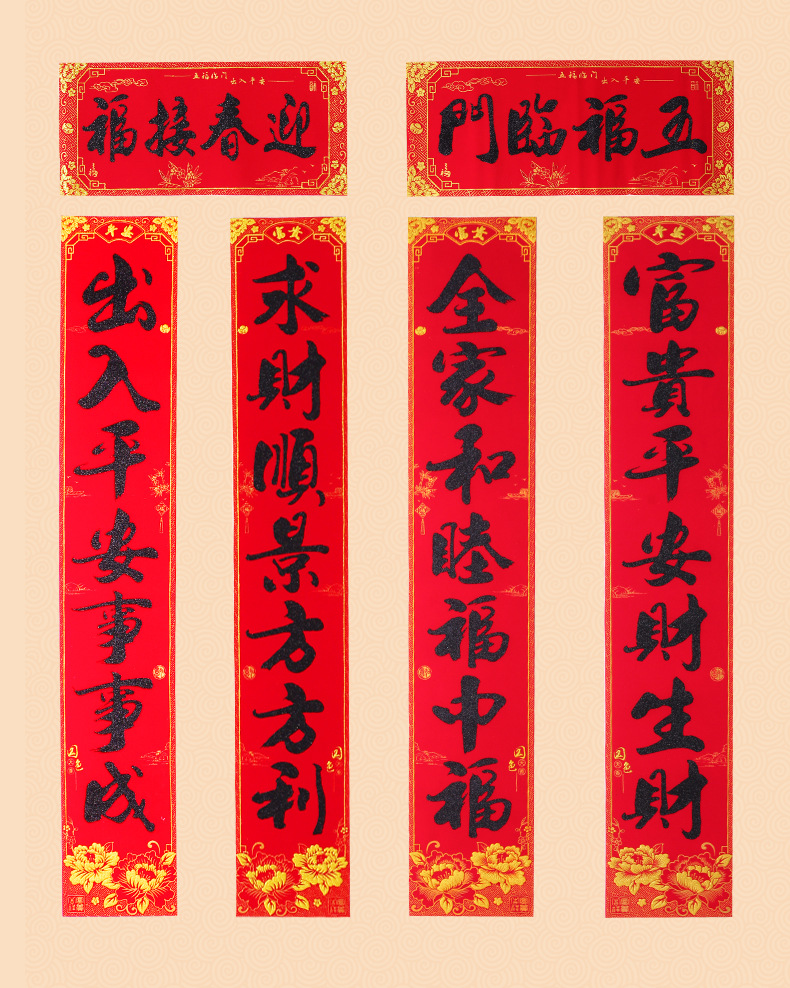 五福临门
出入平安
迎春接福
五福临门
出入平安
五福臨門
平安
出入平安事事成
求財順景方方利
全家和睦福中福
平安
富貴平安財生財